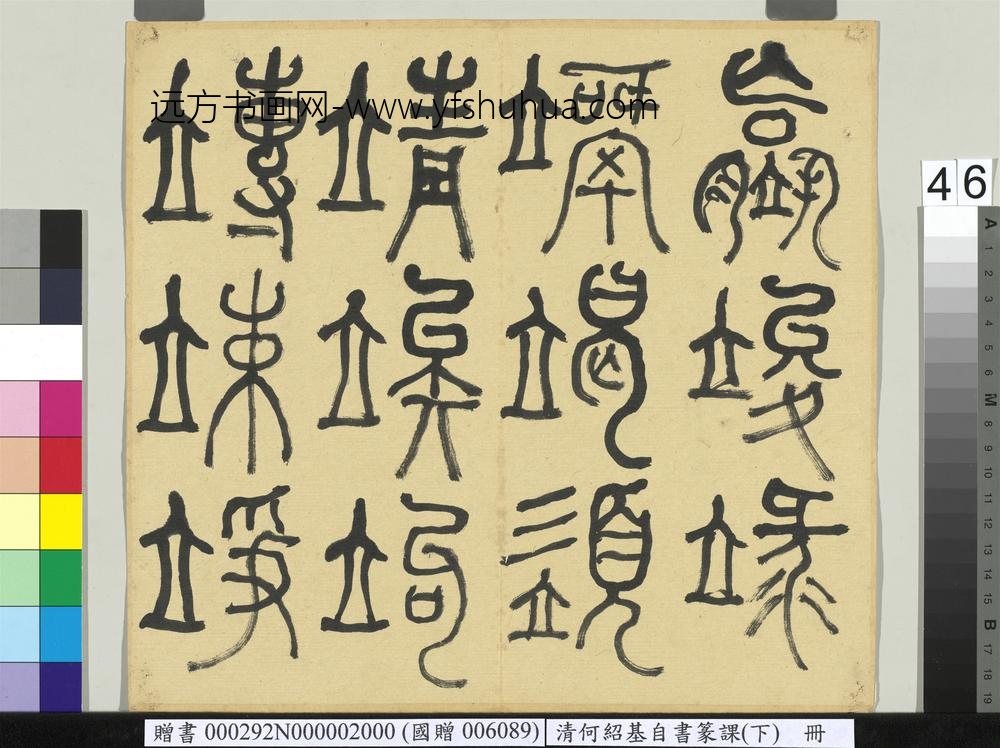 远方书画网-www.yfshuhua.com
竱竦竫
靖竢竘
竵竭䇓
竣
46
A 1 2 3 4 5 6 M 8 9 10 11 12 13 14 15 B 17 18 19
贈書 000292N000002000 (國贈 006089)
清何紹基自書篆課(下) 冊